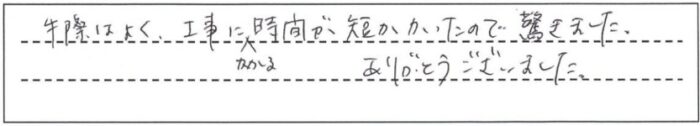 手際はよく、工事にかかる時間が、短かかったので驚きました。
ありがとうございました。